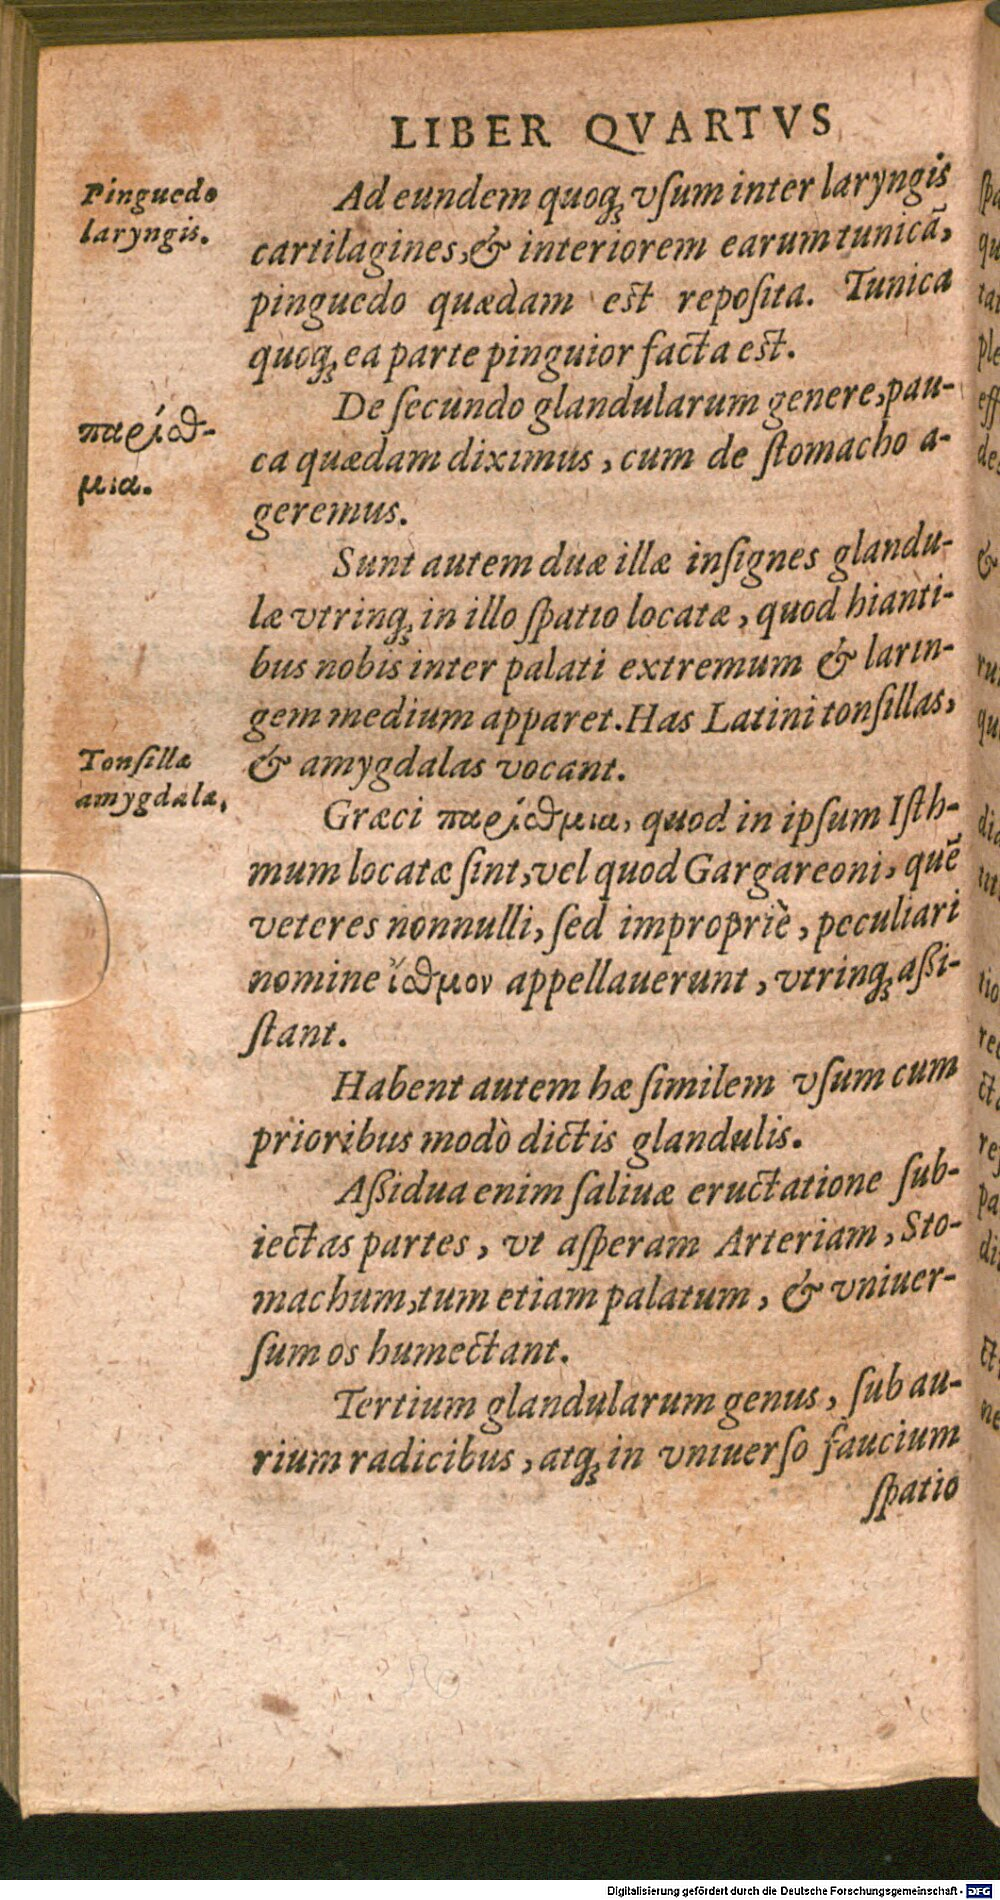 LIBER QVARTVS
Pinguedo
laryngis.
Ad eundem quoq; vſum inter laryngis
cartilagines, & interiorem earum tunicã,
pinguedo quædam est repoſita. Tunica
quoq; ea parte pinguior facta est.
παρίσθ-
μια.
De ſecundo glandularum genere, pau-
ca quædam diximus, cum de ſtomacho a-
geremus.
Sunt autem duæ illæ inſignes glandu-
læ vtrinq; in illo ſpatio locatæ, quod hianti-
bus nobis inter palati extremum & larin-
gem medium apparet. Has Latini tonſillas,
& amygdalas vocant.
Tonſillæ
amygdalæ,
Græci παρίσθμια, quod in ipſum Iſth-
mum locatæ ſint, vel quod Gargareoni, quẽ
veteres nonnulli, ſed impropriè, peculiari
nomine ἴσθμον appellauerunt, vtrinq; aßi-
ſtant.
Habent autem hæ ſimilem vſum cum
prioribus modò dictis glandulis.
Aßidua enim ſaliuæ eructatione ſub-
iectas partes, vt aſperam Arteriam, Sto-
machum, tum etiam palatum, & vniuer-
ſum os humectant.
Tertium glandularum genus, ſub au-
rium radicibus, atq; in vniuerſo faucium
ſpatio
Digitalisierung gefördert durch die Deutsche Forschungsgemeinschaft - DFG